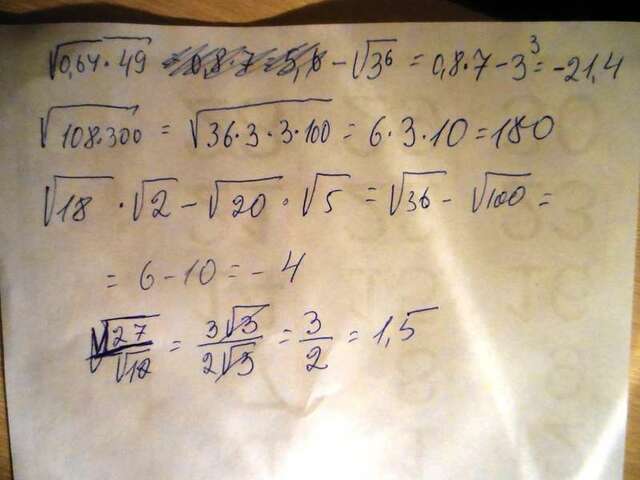 √0,64·49 - √3⁶ = 0,8·7 - 3³ = -21,4
√108·300 = √36·3·3·100 = 6·3·10 = 180
√18 · √2 - √20 · √5 = √36 - √100 =
= 6 - 10 = - 4
√27/√12 = 3√3/2√3 = 3/2 = 1,5